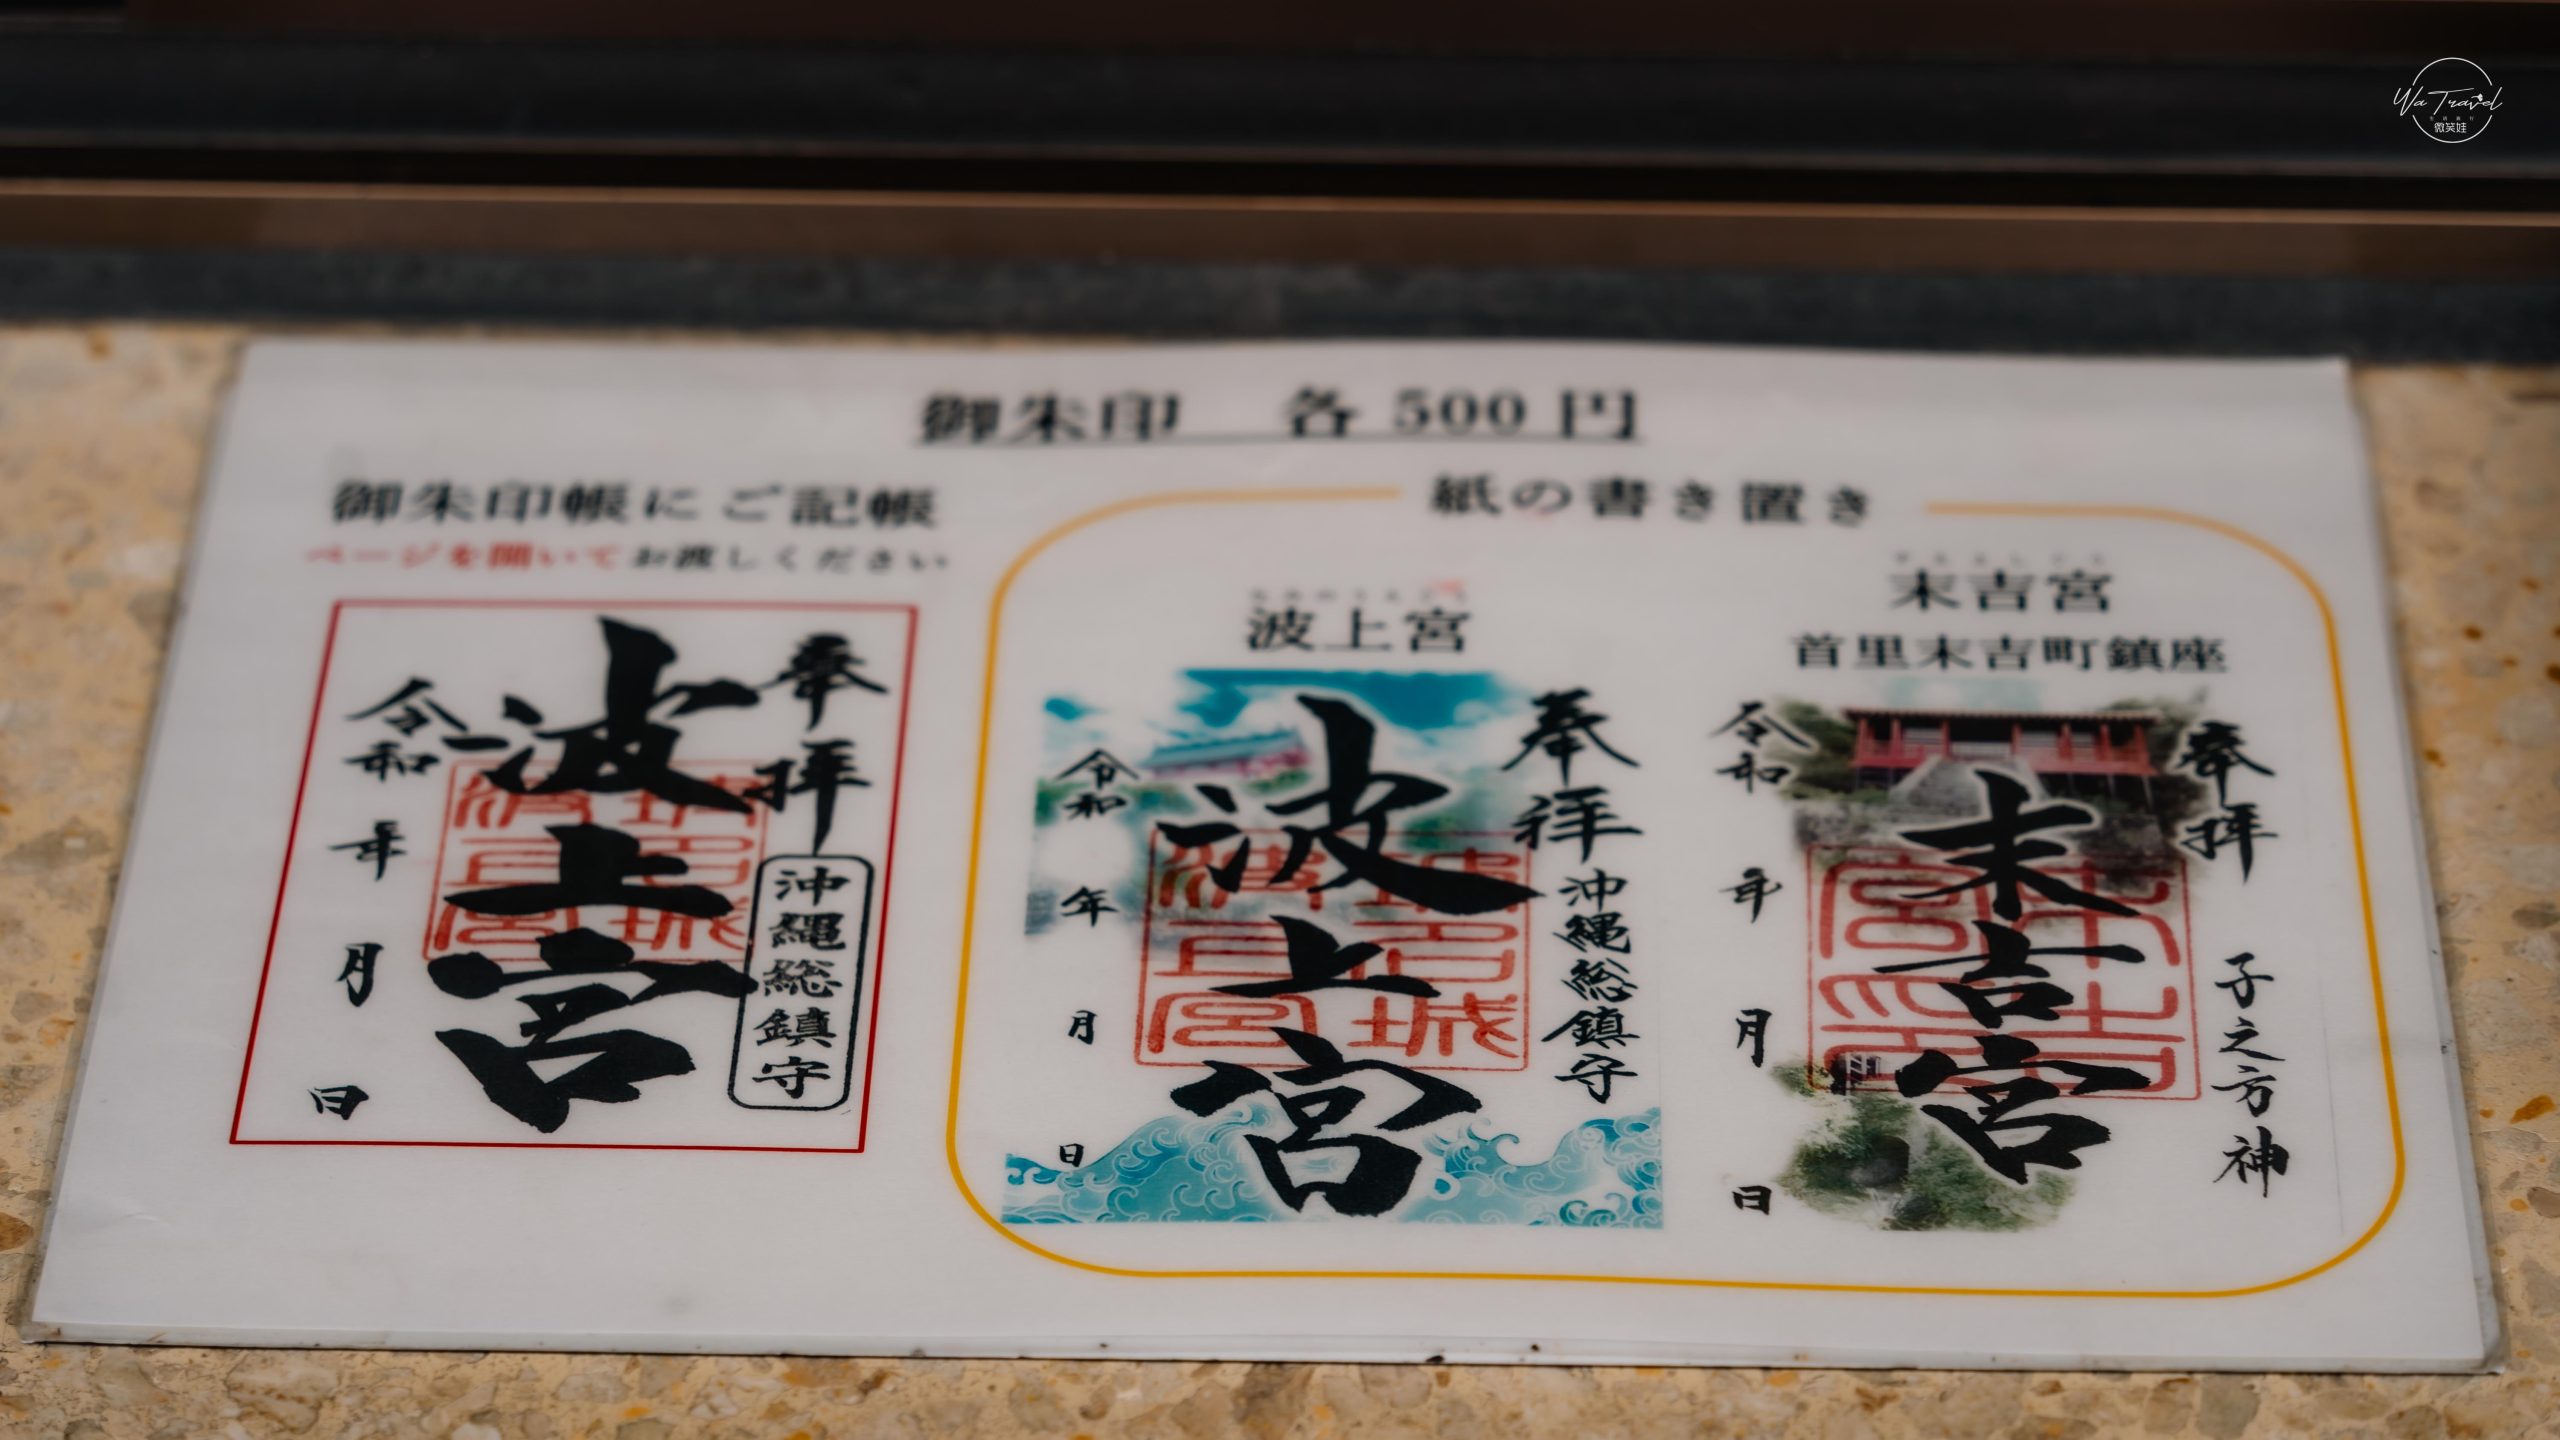 Wa Travel
生活旅行
微笑娃
御朱印 各500円
御朱印帳にご記帳
ページを開いてお渡しください
奉拝
沖縄総鎮守
波上宮
令和 年 月 日
紙の書き置き
波上宮
奉拝
沖縄総鎮守
波上宮
令和 年 月 日
末吉宮
首里末吉町鎮座
奉拝
子之方神
末吉宮
令和 年 月 日